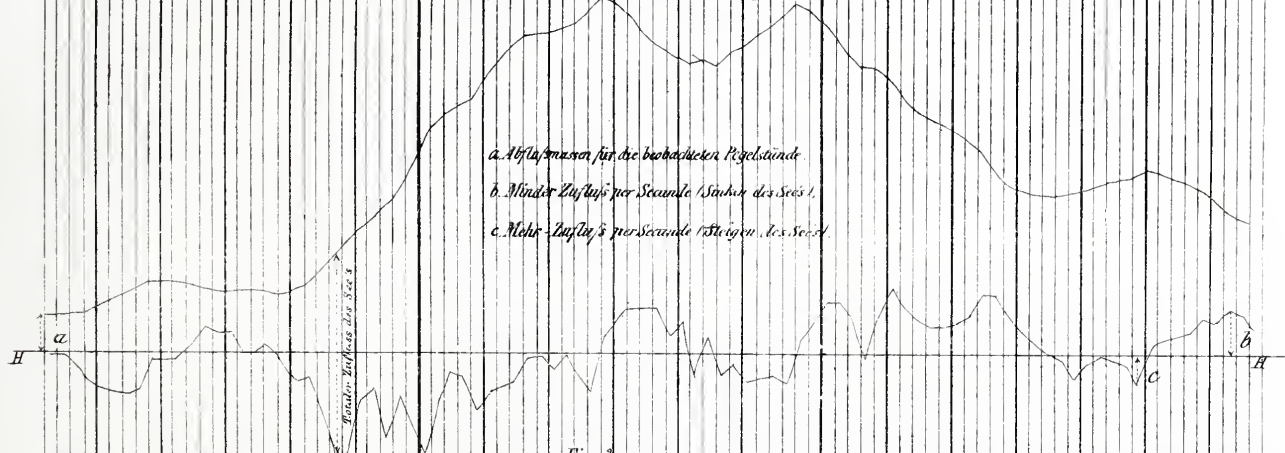 a. Abflußmassen für die beobachteten Pegelstände
b. Minder Zufluß per Secunde (Sinken des See's).
c. Mehr-Zufluß per Secunde (Steigen des See's).
Totaler Zufluss des See's
a
H
b
H
c